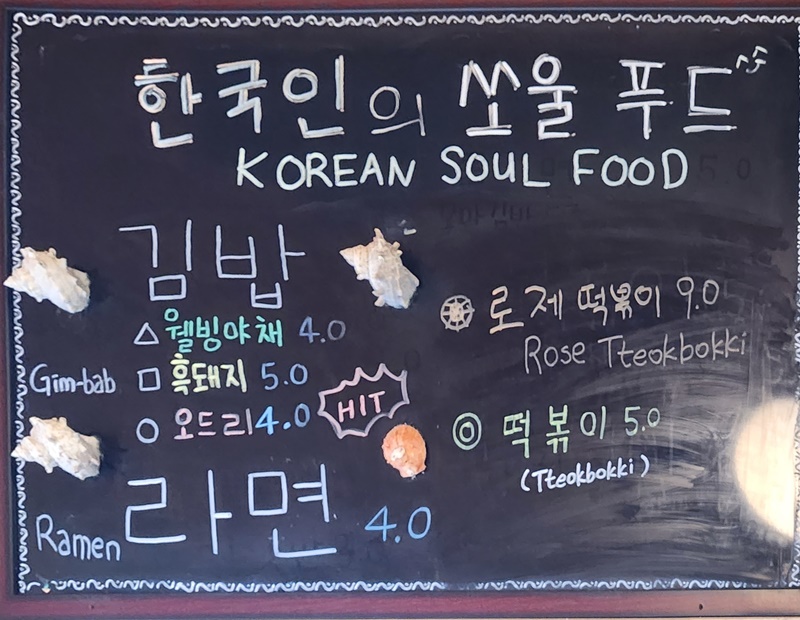 한국인의 쏘울 푸드
KOREAN SOUL FOOD
김밥
Gim-bab
△ 웰빙야채 4.0
□ 흑돼지 5.0
○ 오드리 4.0
HIT
라면 4.0
Ramen
로제 떡볶이 9.0
Rose Tteokbokki
◎ 떡볶이 5.0
(Tteokbokki)